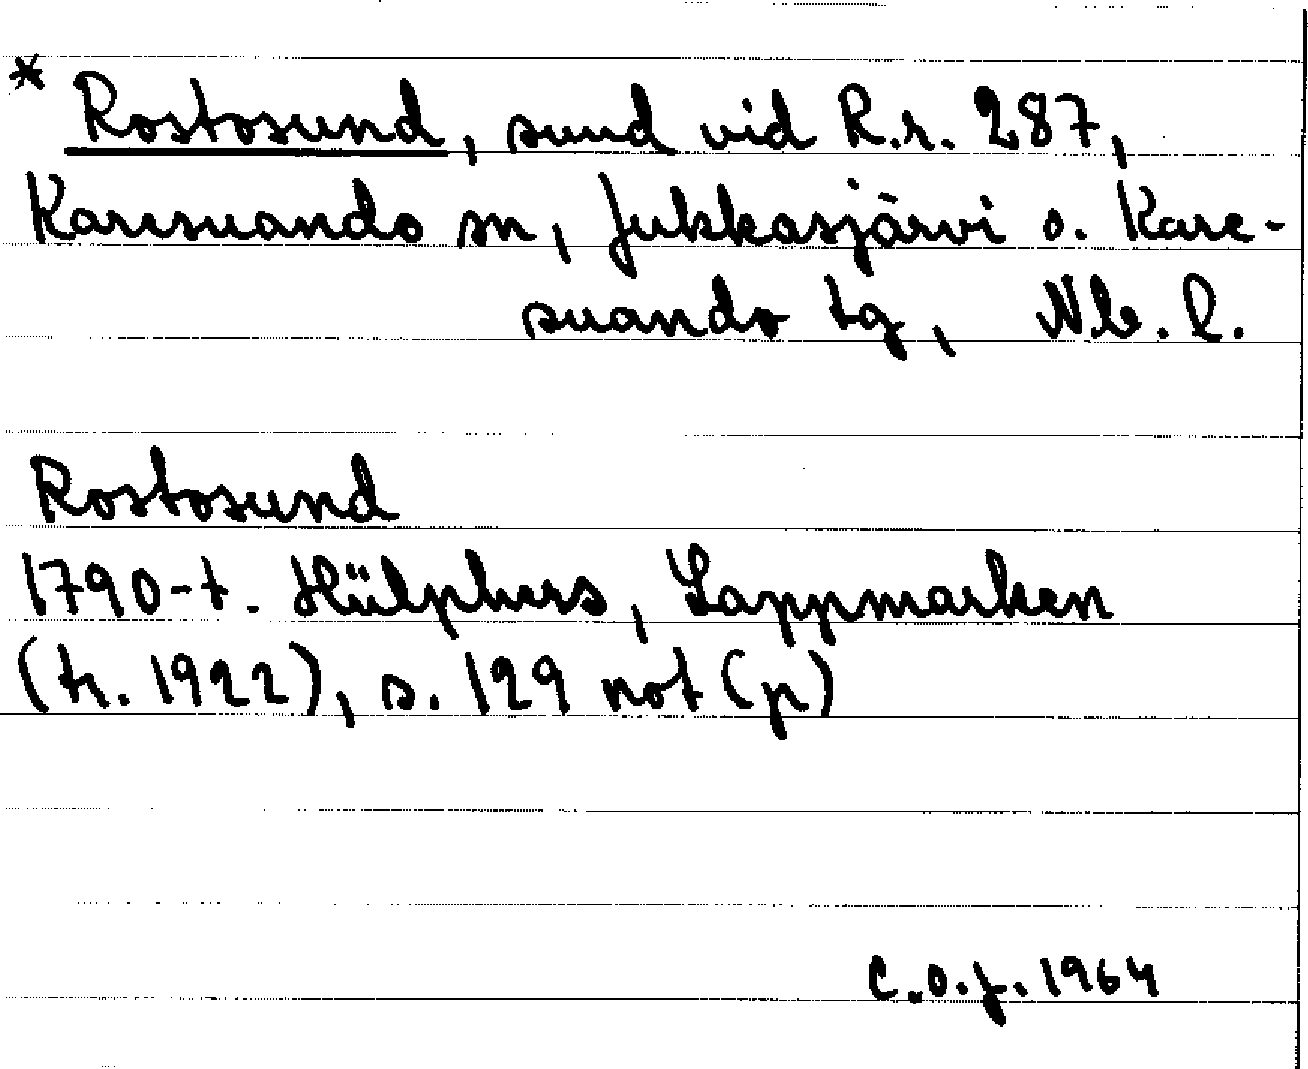 * Rostosund, sund vid R.r. 287,
Karesuando sn, Jukkasjärvi o. Kare-
suando tg, Nb. l.
Rostosund
1790-t. Hülphers, Lappmarken
(tr. 1922), s. 129 not (p)
C.O.J. 1964